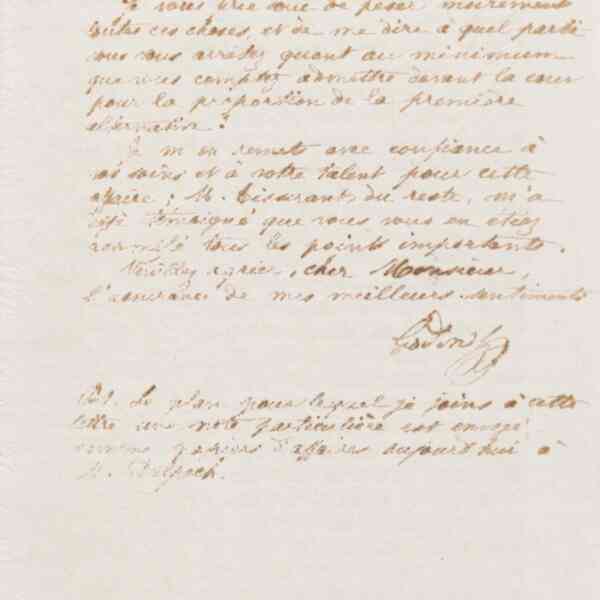 Je vous prie donc de peser mûrement
toutes ces choses, et de me dire à quel parti
vous vous arrêtez quant au minimum
que vous comptez admettre devant la cour
pour la proportion de la première
alternative ?
Je m'en remets avec confiance à
vos soins et à votre talent pour cette
affaire ; M. Tisserant, du reste, m'a
témoigné que vous vous en étiez
tous les points importants.
Veuillez agréer, cher Monsieur,
l'assurance de mes meilleurs sentiments
Godin
P.S. Le plan pour lequel je joins à cette
lettre une note particulière est envoyé
comme papiers d'affaires aujourd'hui à
M. Delpech.